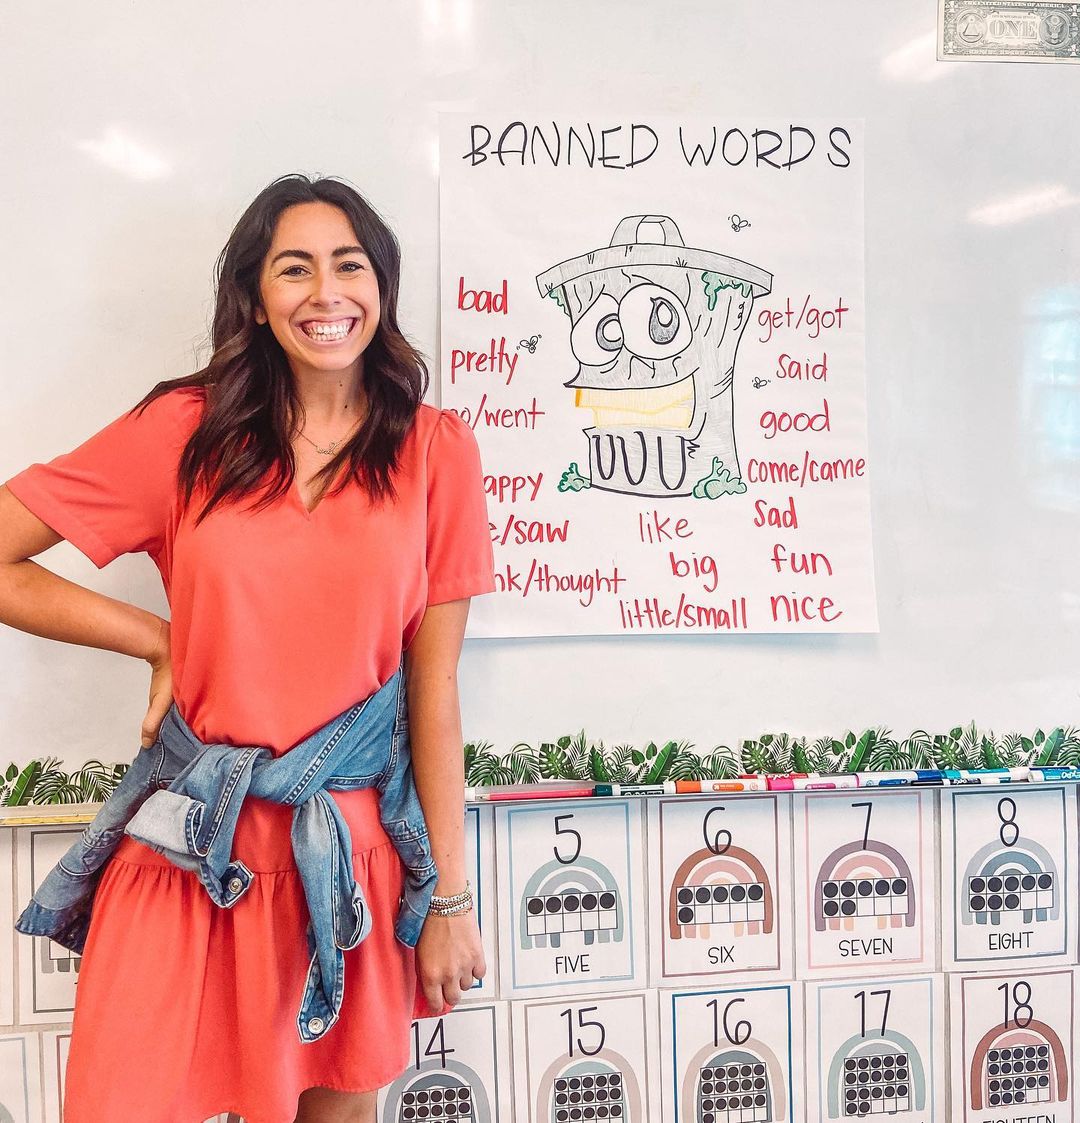 ONE
BANNED WORDS
bad
pretty
o/went
appy
e/saw
nk/thought
like
big
little/small
get/got
said
good
come/came
sad
fun
nice
5
FIVE
6
SIX
7
SEVEN
8
EIGHT
14
15
16
17
18
EIGHTEEN